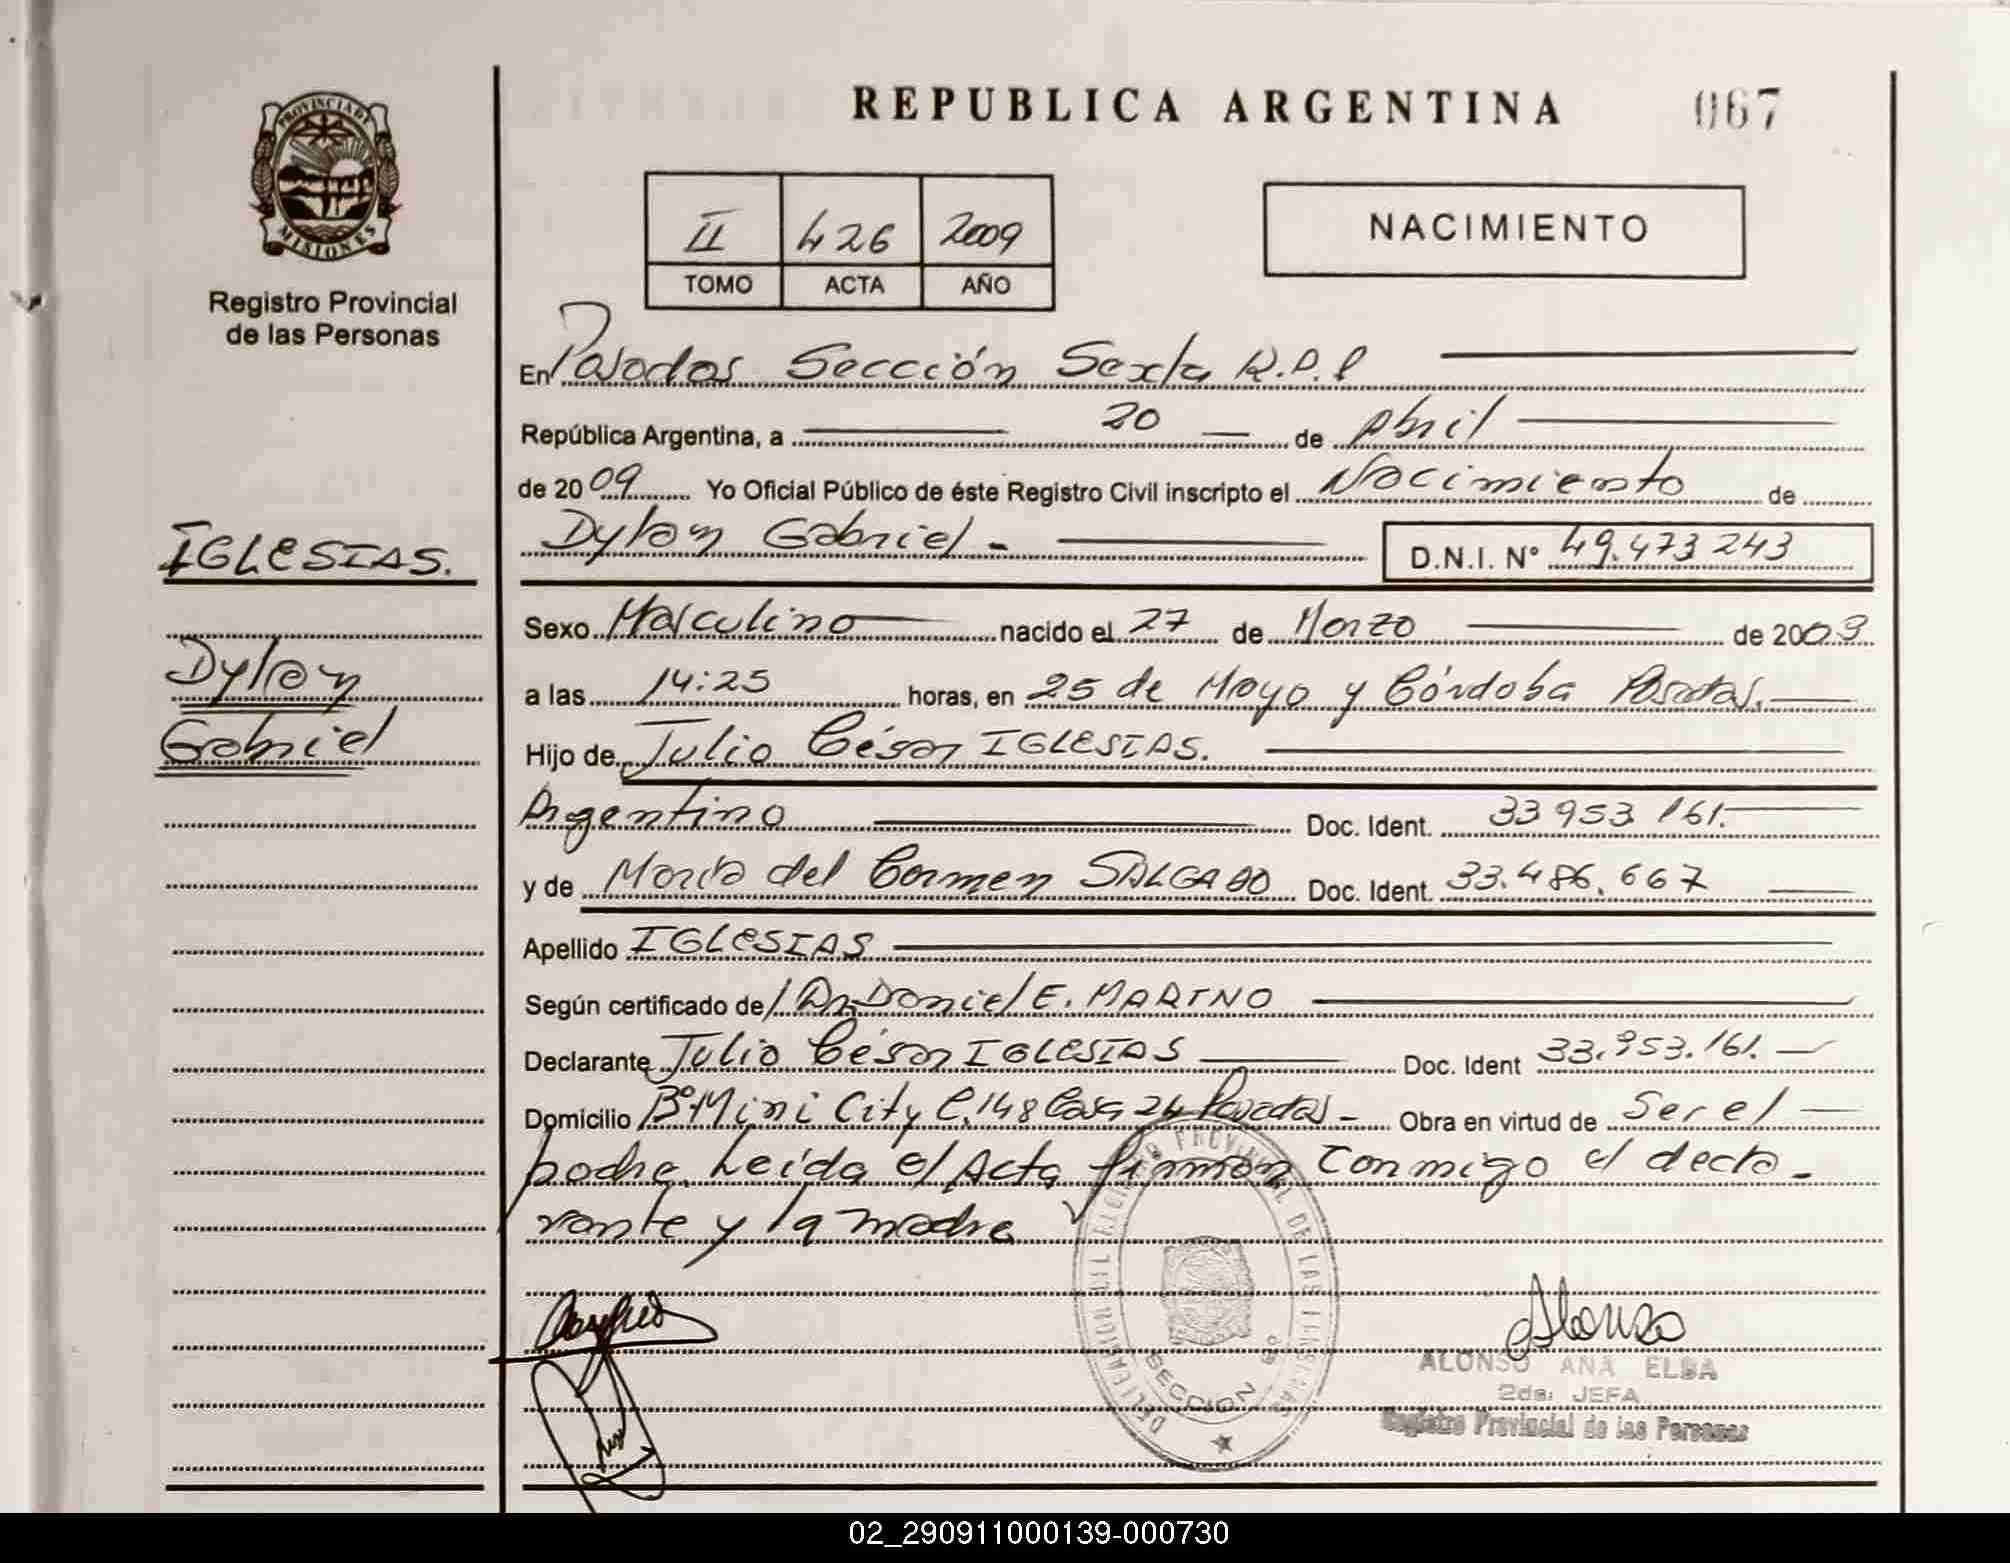 REPUBLICA ARGENTINA
067
PROVINCIA DE
MISIONES
Registro Provincial
de las Personas
II 426 2009
TOMO ACTA AÑO
NACIMIENTO
En Posadas Sección Sexta R.P.P
República Argentina, a 20 de Abril
de 2009 Yo Oficial Público de éste Registro Civil inscripto el Nacimiento de
IGLESIAS.
Dylan Gabriel - D.N.I. Nº 49.473 243
Sexo Masculino nacido el 27 de Marzo de 2009
Dylan
a las 14:25 horas, en 25 de Mayo y Córdoba Posadas.
Gabriel
Hijo de Julio César IGLESIAS.
Argentino Doc. Ident. 33 953 161.
y de María del Carmen SALGADO Doc. Ident. 33.486.667
Apellido IGLESIAS
Según certificado de Dr. Daniel E. MARINO
Declarante Julio César IGLESIAS Doc. Ident 33.953.161.
Domicilio Bº Mini City C. 148 Casa 24 Posadas - Obra en virtud de Ser el
padre. Leída el Acta, firman conmigo el decla-
rante y la madre
DELEGACION DEL REGISTRO PROVINCIAL DE LAS PERSONAS
SECCION
Alonso
ALONSO ANA ELBA
2da. JEFA
Registro Provincial de las Personas
02_290911000139-000730